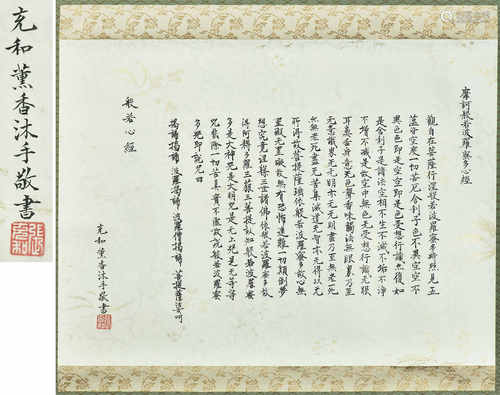 充和薰香沐手敬書
摩訶般若波羅蜜多心經
觀自在菩薩行深般若波羅蜜多時照見五
蘊皆空度一切苦厄舍利子色不異空空不
異色色即是空空即是色受想行識亦復如
是舍利子是諸法空相不生不滅不垢不淨
不增不減是故空中無色无受想行識无眼
耳鼻舌身意无色聲香味觸法無眼界乃至
无意識界无无明亦无无明盡乃至無老死
亦無老死盡无苦集滅道无智亦无得以无
所得故菩提薩埵依般若波羅蜜多故心無
罣礙无罣礙故無有恐怖遠離一切顛倒夢
想究竟涅槃三世諸佛依般若波羅蜜多故
得阿耨多羅三藐三菩提故知般若波羅蜜
多是大神咒是大明咒是无上咒是无等等
咒能除一切苦真實不虛故說般若波羅蜜
多咒即說咒曰
揭諦揭諦 波羅揭諦 波羅僧揭諦 菩提薩婆呵
般若心經
充和薰香沐手敬書